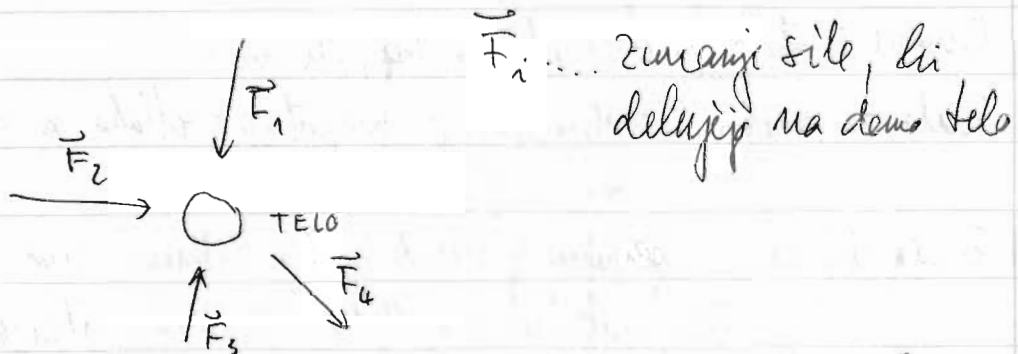 F⃗ᵢ .... zunanje sile, ki
delujejo na dano telo
F⃗₁
F⃗₂
TELO
F⃗₄
F⃗₃